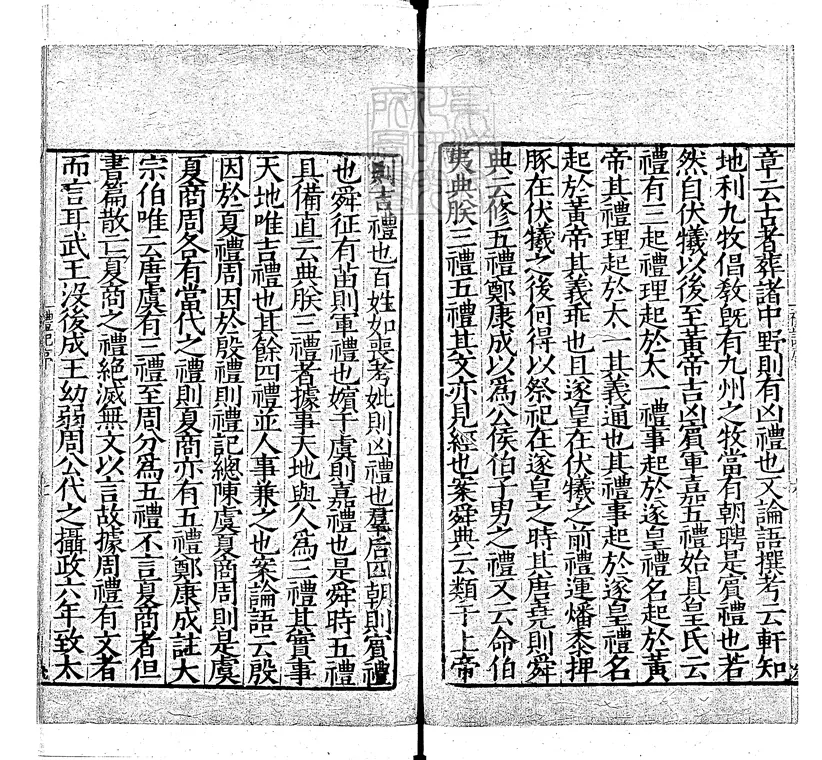 章云古者葬諸中野則有凶禮也又論語撰考云軒知
地利九牧倡教旣有九州之牧當有朝聘是賓禮也若
然自伏犧以後至黃帝吉凶賓軍嘉五禮始具皇氏云
禮有三起禮理起於太一禮事起於遂皇禮名起於黃
帝其禮理起於太一其義通也其禮事起於遂皇禮名
起於黃帝其義乖也且遂皇在伏犧之前禮運燔黍捭
豚在伏犧之後何得以祭祀在遂皇之時其唐堯則舜
典云修五禮鄭康成以爲公侯伯子男之禮又云命伯
夷典朕三禮五禮其文亦見經也案舜典云類于上帝
則吉禮也百姓如喪考妣則凶禮也羣后四朝則賓禮
也舜征有苗則軍禮也嬪于虞則嘉禮也是舜時五禮
具備直云典朕三禮者據事天地與人爲三禮其實事
天地唯吉禮也其餘四禮並人事兼之也案論語云殷
因於夏禮周因於殷禮則禮記總陳虞夏商周則是虞
夏商周各有當代之禮則夏商亦有五禮鄭康成註大
宗伯唯云唐虞有三禮至周分爲五禮不言夏商者但
書篇散亡夏商之禮絕滅無文以言故據周禮有文者
而言耳武王沒後成王幼弱周公代之攝政六年致太
禮記序